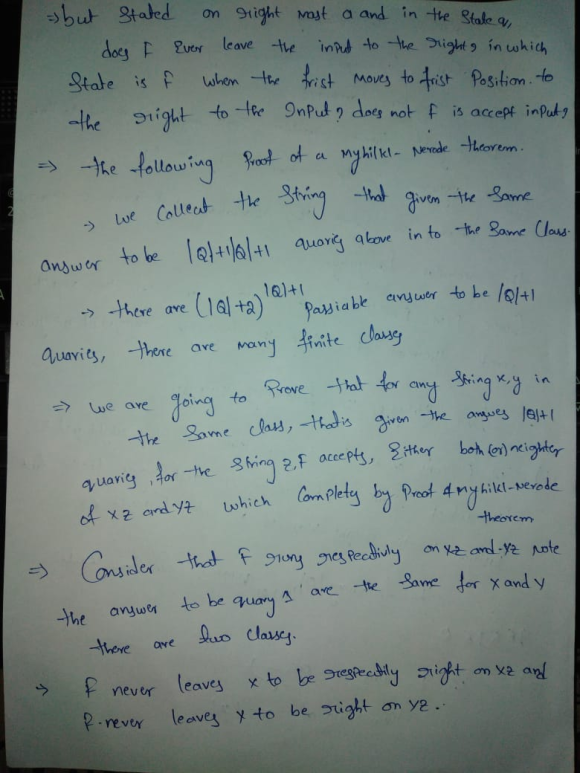 ⇒ but Stated on right most a and in the State q,
does F Ever leave the input to the right, in which
State is F when the frist moves to frist Position to
the right to the Input? does not F is accept input?
⇒ the following Proof of a Myhilkl- Nerode theorem.
→ we Collect the String that given the Same
answer to be |Q|+1|Q|+1 quaries above in to the Same Class.
→ there are (|Q|+2)^|Q|+1 Passiable answer to be |Q|+1
quaries, there are many finite classes
⇒ we are going to Prove that for any String x,y in
the Same class, thatis given the angwes |Q|+1
quaries, for the String z, F accepts, Either both (or) neighter
of xz and yz which Complety by Proof of myhilkl-Nerode
theorem
⇒ Consider that F runs respectivly on xz and yz Note
the answer to be quary 1 are the Same for x and y
there are two classes.
→ F never leaves x to be respectily right on xz and
F never leaves y to be right on yz.